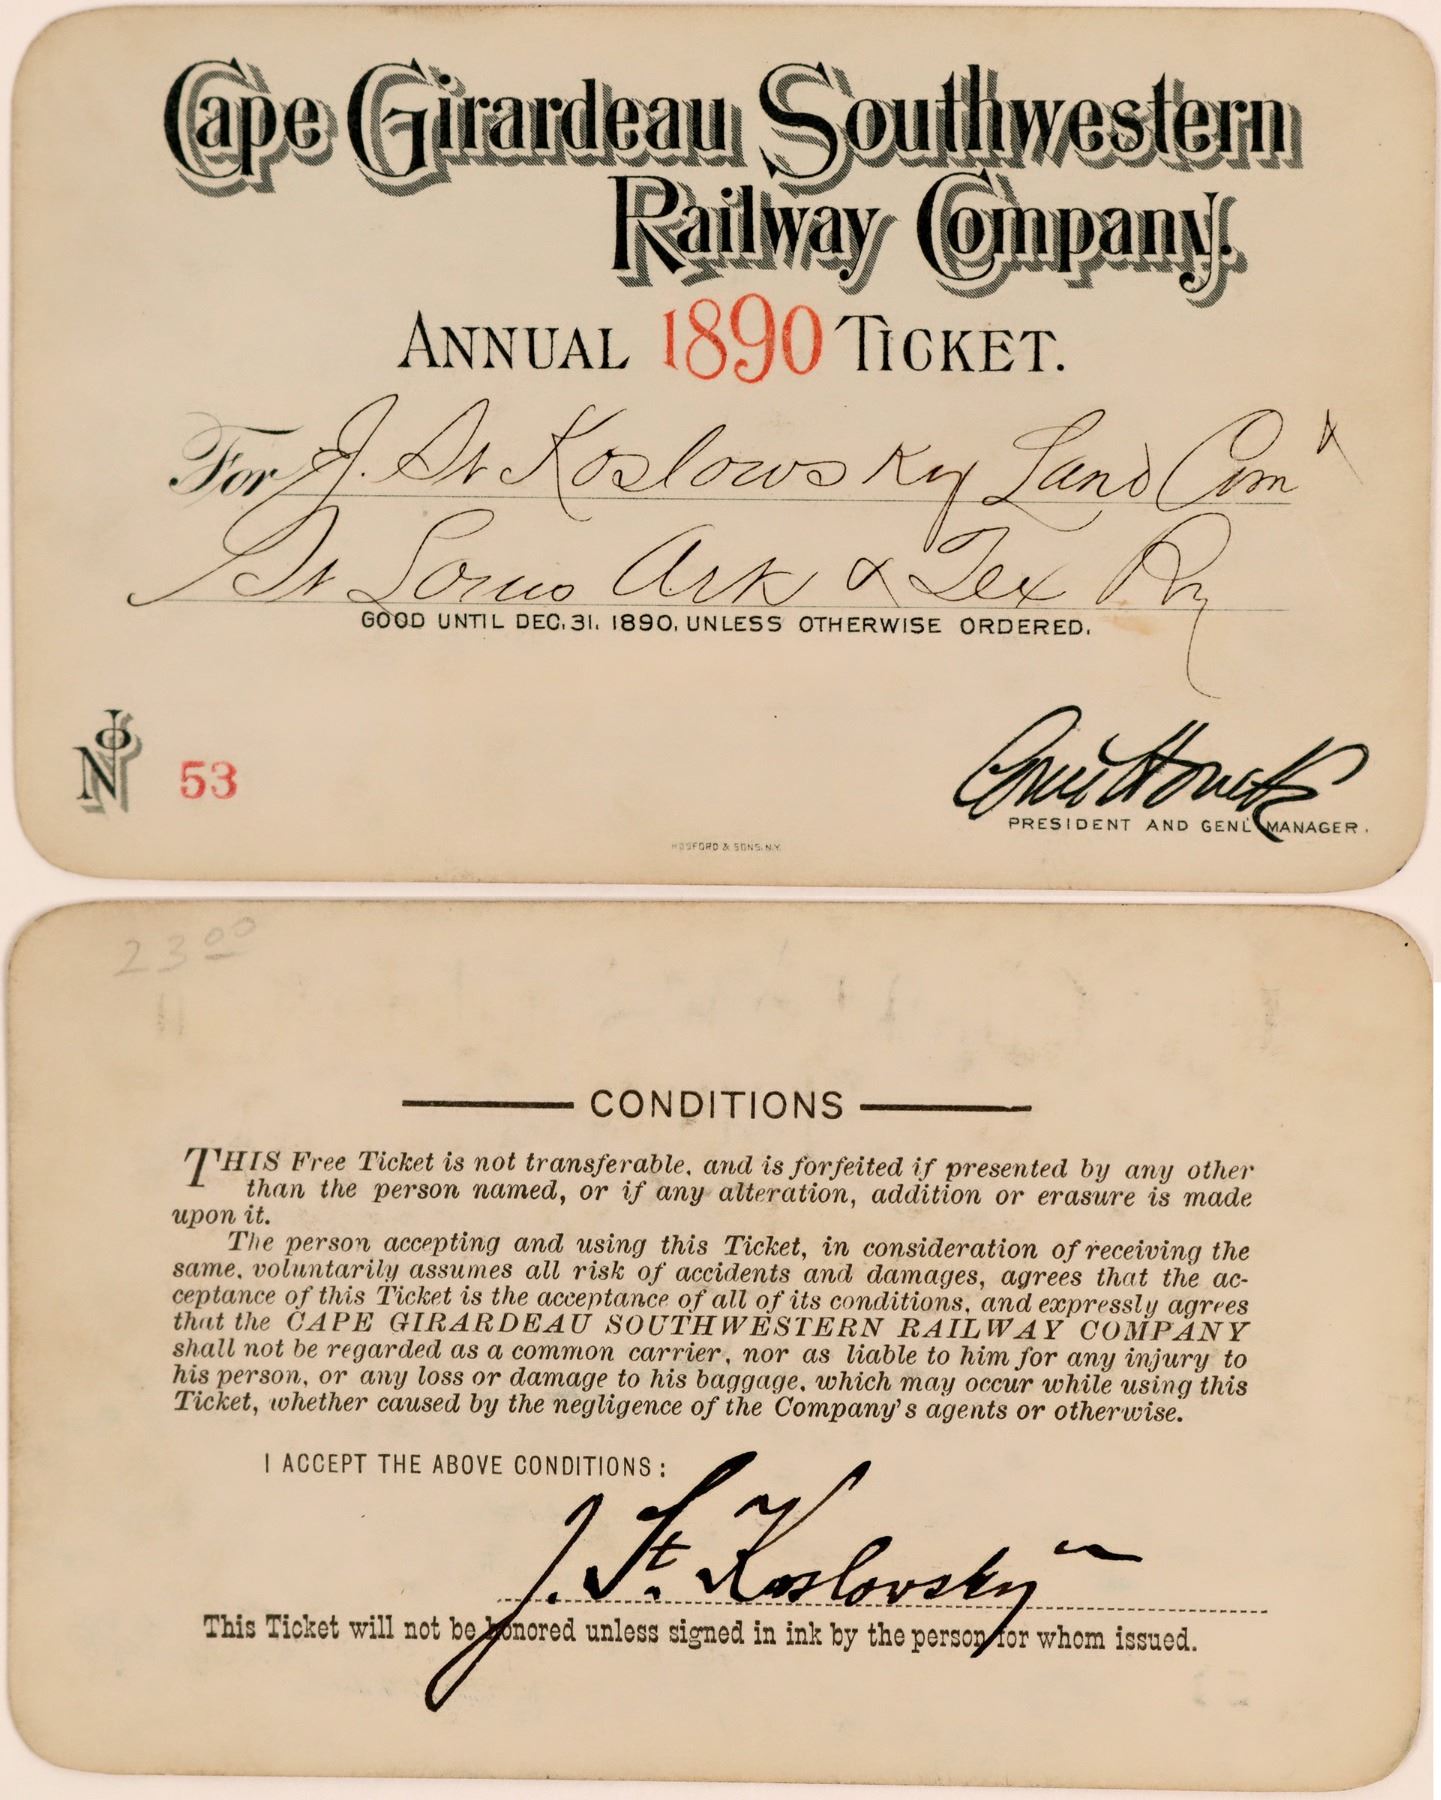 Cape Girardeau Southwestern
Railway Company.
ANNUAL 1890 TICKET.
For J. St Koslowsky Land Com
St Louis Ark & Tex Ry
GOOD UNTIL DEC. 31. 1890, UNLESS OTHERWISE ORDERED.
No 53
Louis Houck
PRESIDENT AND GENL MANAGER.
HOSFORD & SONS. N.Y.
23 00
CONDITIONS
THIS Free Ticket is not transferable, and is forfeited if presented by any other
than the person named, or if any alteration, addition or erasure is made
upon it.
The person accepting and using this Ticket, in consideration of receiving the
same, voluntarily assumes all risk of accidents and damages, agrees that the ac-
ceptance of this Ticket is the acceptance of all of its conditions, and expressly agrees
that the CAPE GIRARDEAU SOUTHWESTERN RAILWAY COMPANY
shall not be regarded as a common carrier, nor as liable to him for any injury to
his person, or any loss or damage to his baggage, which may occur while using this
Ticket, whether caused by the negligence of the Company's agents or otherwise.
I ACCEPT THE ABOVE CONDITIONS:
J. St. Koslovsky
This Ticket will not be honored unless signed in ink by the person for whom issued.